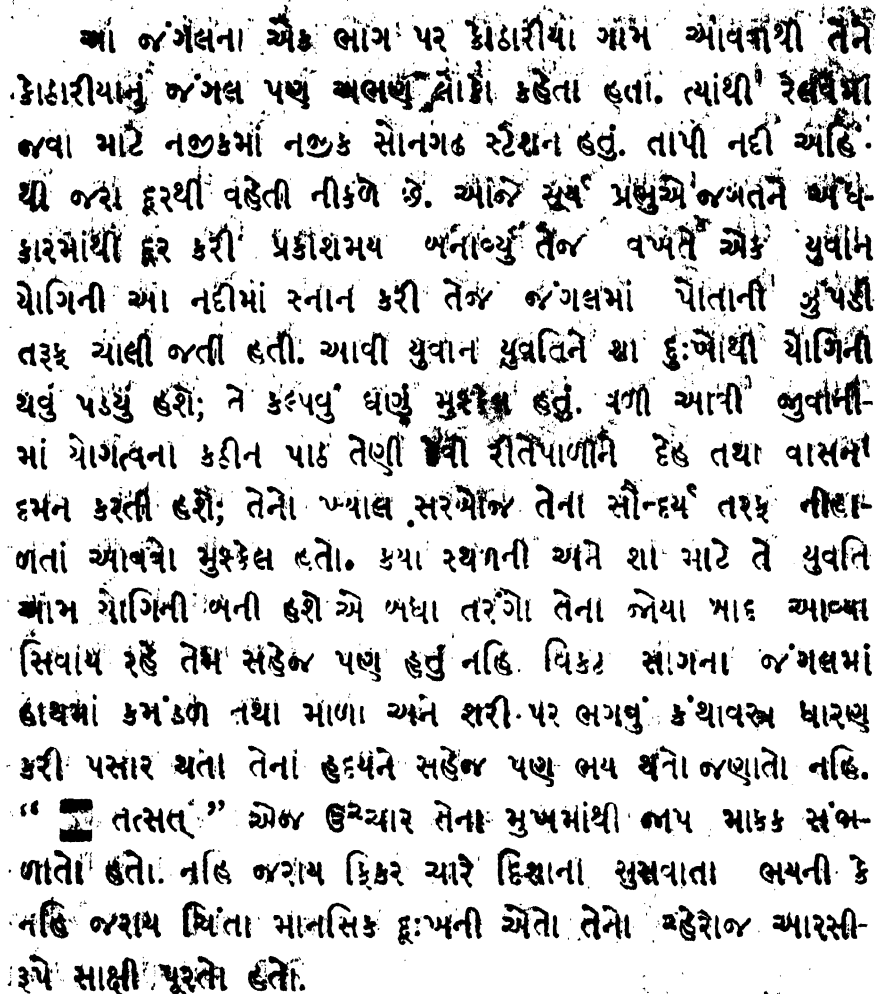 આ જંગલના એક ભાગ પર કોઠારીયા ગામ આવવાથી તેને
કોઠારીયાનું જંગલ પણ અભણ લોકો કહેતા હતા. ત્યાંથી રેલવેમાં
જવા માટે નજીકમાં નજીક સોનગઢ સ્ટેશન હતું. તાપી નદી અહિં-
થી જરા દૂરથી વહેતી નીકળે છે. આજે સૂર્ય પ્રભુએ જગતને અંધ-
કારમાંથી દૂર કરી પ્રકાશમય બનાવ્યું તેજ વખતે એક યુવાન
યોગિની આ નદીમાં સ્નાન કરી તેજ જંગલમાં પોતાની ઝુંપડી
તરફ ચાલી જતી હતી. આવી યુવાન યુવતિને શા દુઃખોથી યોગિની
થવું પડ્યું હશે; તે કલ્પવું ઘણું મુશ્કેલ હતું. વળી આવી જુવાની-
માં યોગત્વના કઠીન પાઠ તેણી કેવી રીતેપાળીને દેહ તથા વાસના
દમન કરતી હશે; તેનો ખ્યાલ સરખોજ તેના સૌન્દર્ય તરફ નીહા-
ળતાં આવવો મુશ્કેલ હતો. કયા સ્થળની અને શા માટે તે યુવતિ
આમ યોગિની બની હશે એ બધા તરંગો તેના જોયા બાદ આવ્યા
સિવાય રહે તેમ સહેજ પણ હતું નહિ. વિકટ સાગના જંગલમાં
હાથમાં કમંડળ તથા માળા અને શરી- પર ભગવું કંથાવસ્ત્ર ધારણ
કરી પસાર થતા તેનાં હૃદયને સહેજ પણ ભય થતો જણાતો નહિ.
“ તત્સત્ ” એજ ઉચ્ચાર તેના મુખમાંથી જાપ માફક સંભ-
ળાતો હતો. નહિ જરાય ફિકર ચારે દિશાના સુસવાતા ભયની કે
નહિ જરાય ચિંતા માનસિક દુઃખની એતો તેનો ચ્હેરોજ આરસી-
રૂપે સાક્ષી પૂરતો હતો.